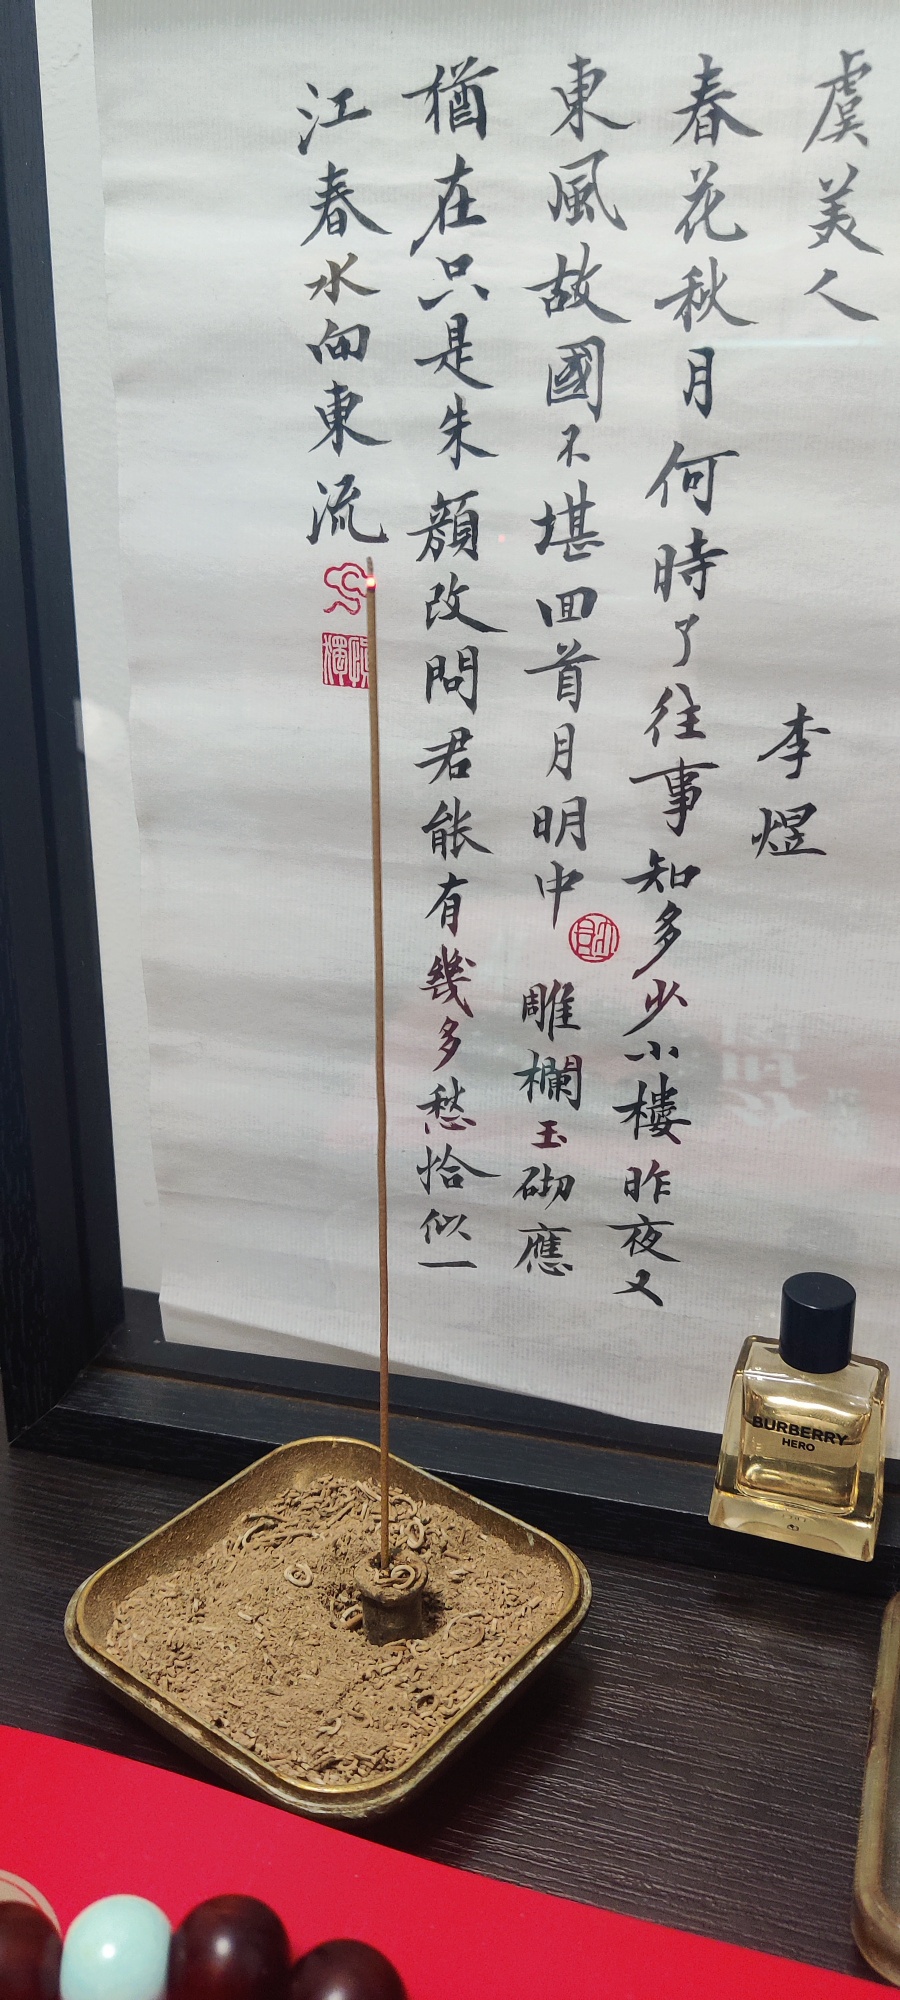 虞美人
李煜
春花秋月何時了往事知多少小樓昨夜又
東風故國不堪回首月明中
雕欄玉砌應
猶在只是朱顏改問君能有幾多愁恰似一
江春水向東流
BURBERRY
HERO